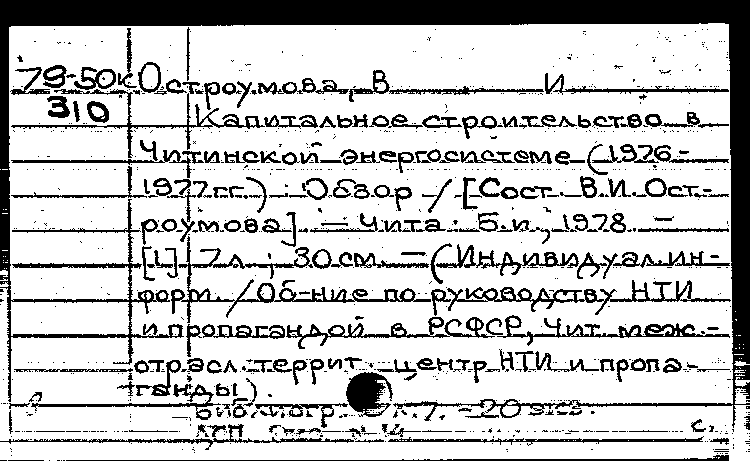 78-50к Остроумова, В И
310 Капитальное строительство в
Читинской энергосистеме (1976-
1977 гг.) : Обзор / [Сост. В.И. Ост-
роумова]. — Чита : Б.и., 1978. —
[1] 7 л. ; 30 см. — (Индивидуал. ин-
форм. / Об-ние по руководству НТИ
и пропагандой в РСФСР, Чит. меж-
отрасл. террит. центр НТИ и пропа-
ганды).
Библиогр.: с. 7. - 20 экз.
ДСП
с.